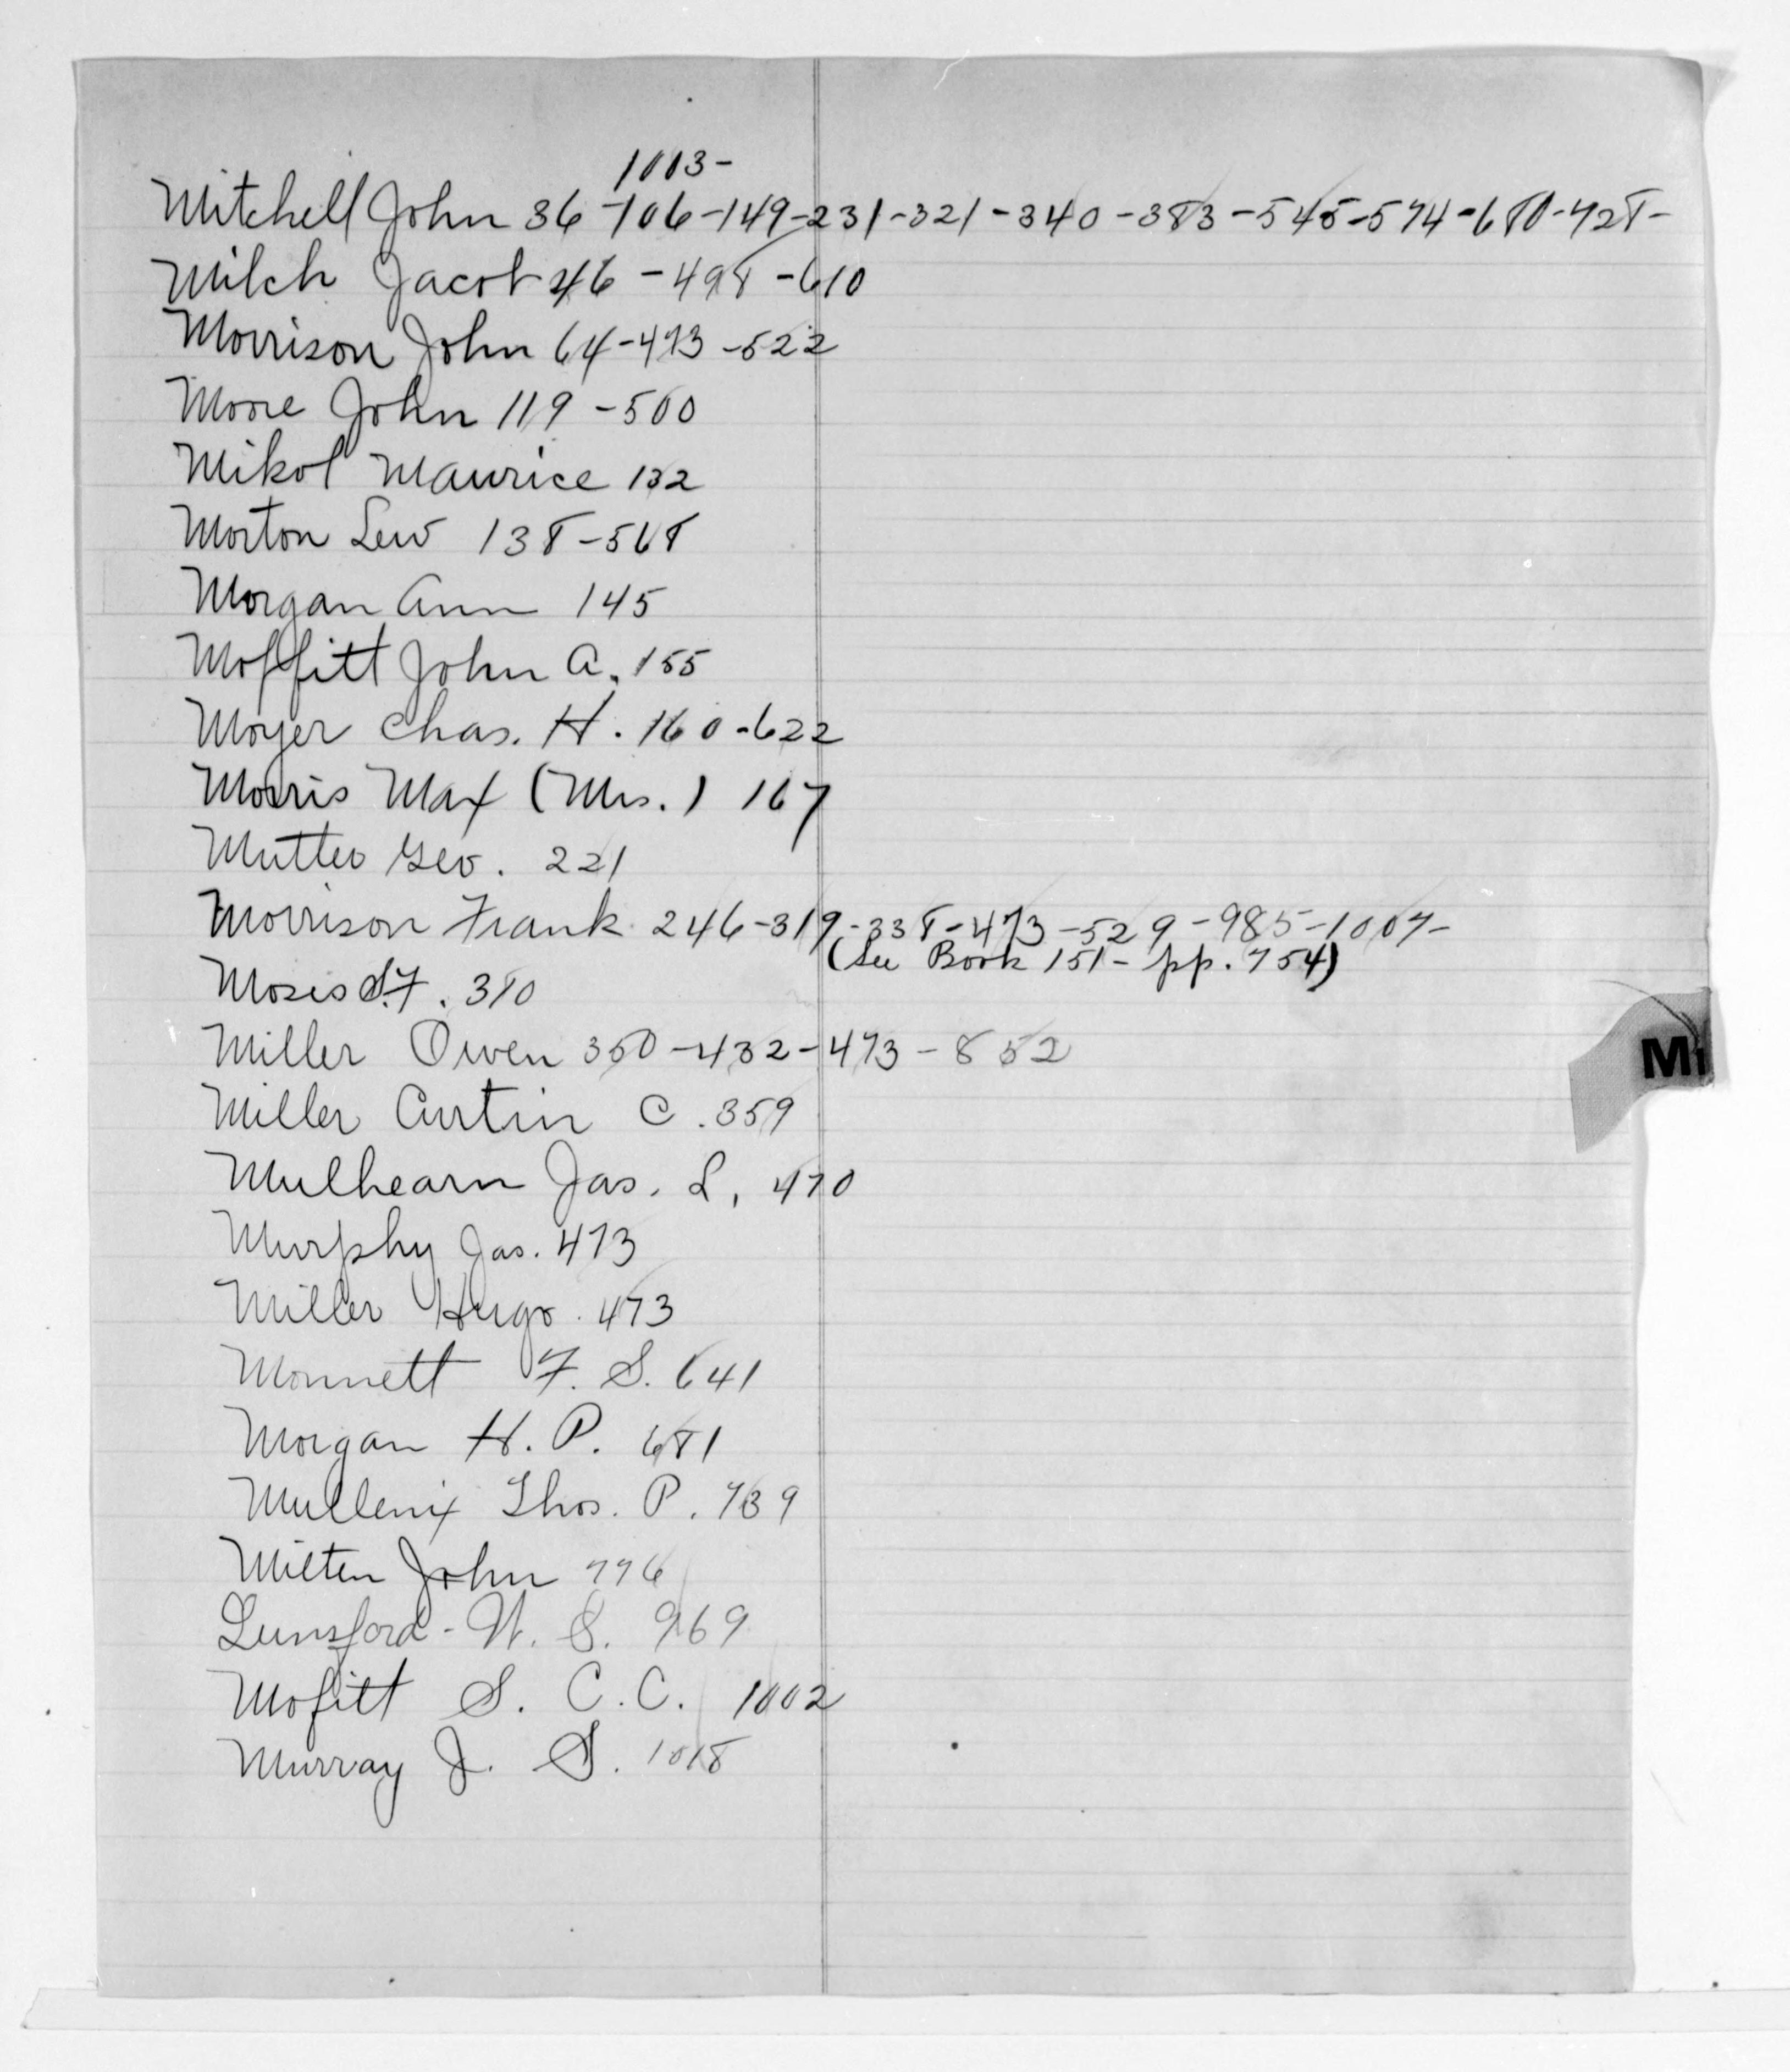 1003-
Mitchell John 36-106-149-231-321-340-383-545-574-680-728-
Milch Jacob 46-498-610
Morrison John 64-473-522
Moore John 119-500
Mikol Maurice 132
Morton Lew 138-568
Morgan Ann 145
Moffitt John A. 155
Moyer Chas. H. 160-622
Morris Max (Mrs.) 167
Mutter Geo. 221
Morrison Frank 246-319-338-473-529-985-1007-
(See Book 151- pp. 754)
Moses S.F. 380
Miller Owen 350-432-473-852
M
Miller Curtin C. 359
Mulhearn Jas. L. 470
Murphy Jas. 473
Miller Hugo 473
Monnett F. S. 641
Morgan H. P. 681
Mullenix Thos. P. 739
Milten John 776
Lunsford - W. S. 969
Mofitt S. C. C. 1002
Murray J. S. 1018